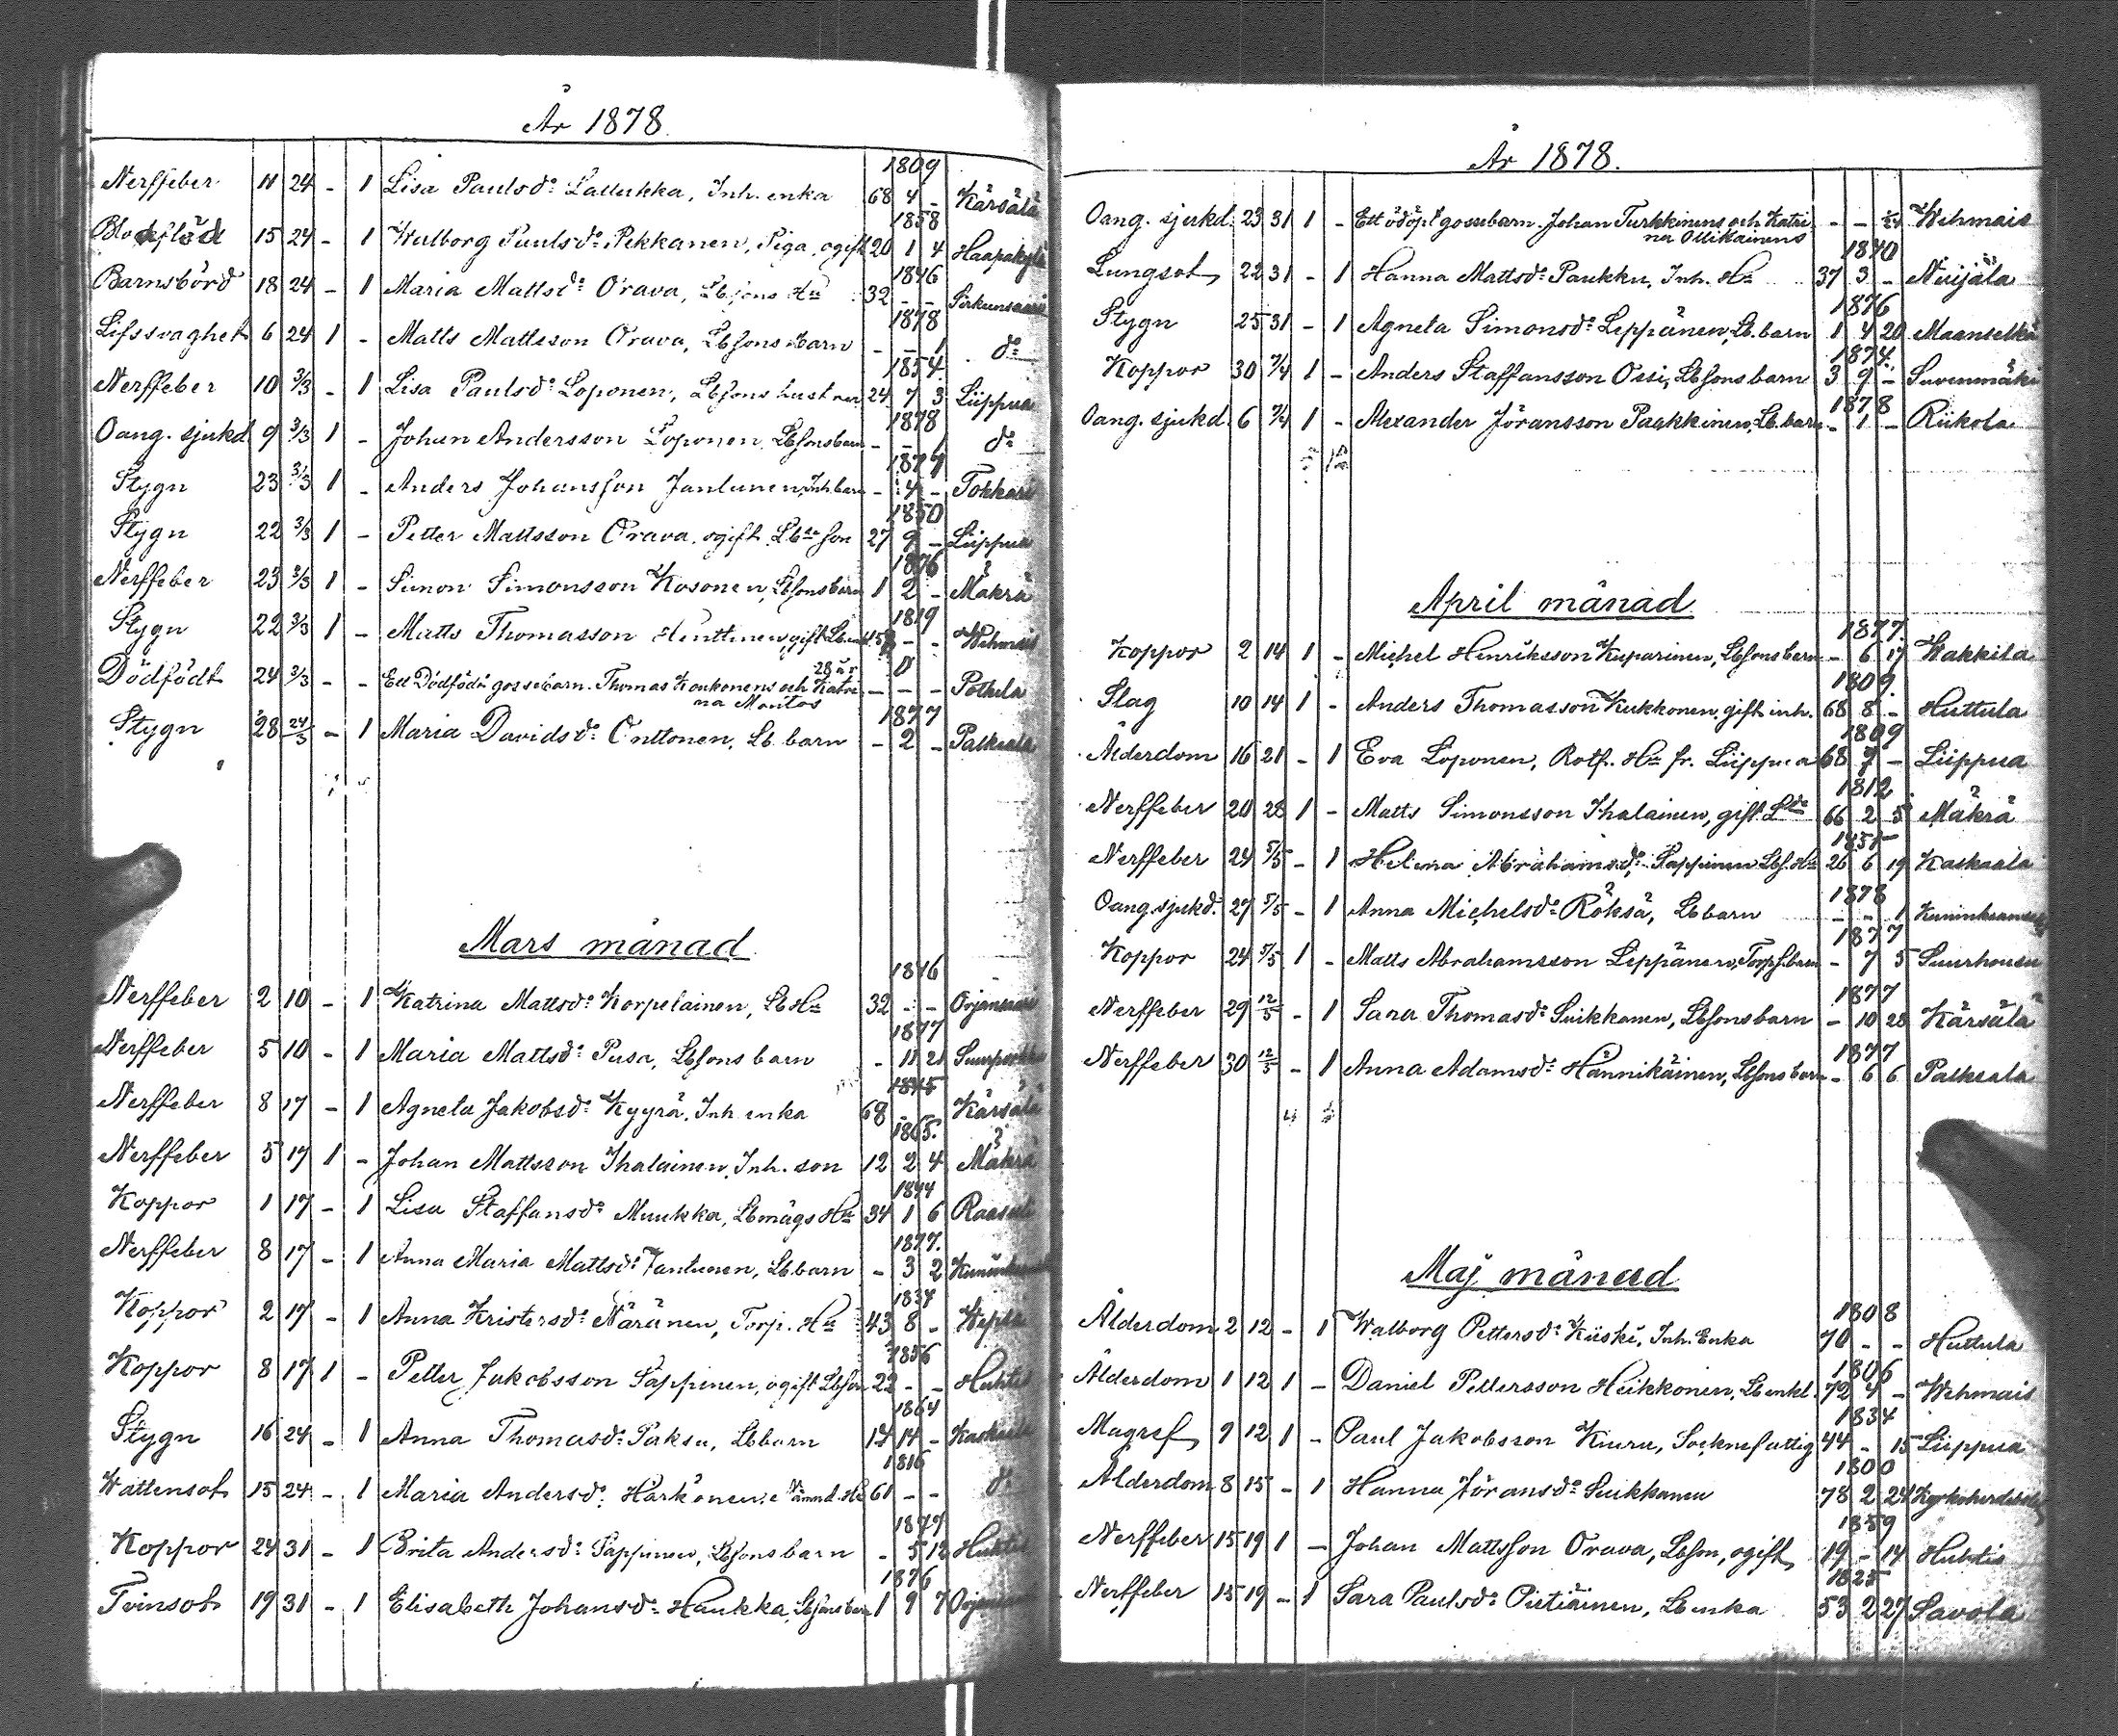 År 1878
1809
Nerffeber 11 24 - 1 Lisa Paulsd:r Lallukka, Inh. enka 68 4 - Kärsälä
1858
Blodflöd 15 24 - 1 Walborg Paulsd:r Pekkanen, Piga, ogift 20 1 4 Haapakylä
1846
Barnsbörd 18 24 - 1 Maria Mattsd:r Orava, Lbsons Hu 32 - - Sirkunsaari
1878
Lifssvaghet 6 24 1 - Matts Mattsson Orava, Lbsons barn - - 1 d:o
1854
Nerffeber 10 3/3 - 1 Lisa Paulsd:r Loponen, Lbsons hustru 24 7 3 Liippua
1878
Oang. sjukd 9 3/3 1 - Johan Andersson Loponen Lbsonsbarn - - 1 d:o
1877
Stygn 23 3/3 1 - Anders Johansson Jantunen, Inh. barn - 4 - Tokkari
1850
Stygn 22 3/3 1 - Petter Mattsson Orava, ogift Lbde son 27 9 - Liippua
1876
Nerffeber 23 3/3 1 - Simon Simonsson Kosonen, Lbsonsbarn 1 2 - Mäkrä
1819
Stygn 22 3/3 1 - Matts Thomasson Henttinen, gift Wehmais
28 år
Dödfödt 24 3/3 - - Ett Dödfödt gossebarn. Thomas Koukonens och Katri - - - Pothila
na Montos
1877
Stygn 28 24/3 - 1 Maria Davidsd:r Onttonen, Lb. barn - 2 - Palksala
Mars månad
1846
Nerffeber 2 10 - 1 Katrina Mattsd:r Korpelainen, Lb Hu 32 - - Orjansaari
1877
Nerffeber 5 10 - 1 Maria Mattsd:r Pusa, Lbsons barn - 11 21
1845
Nerffeber 8 17 - 1 Agneta Jakobsd:r Kyyrä, Inh enka 68 - - Kärsälä
1865.
Nerffeber 5 17 1 - Johan Mattsson Ihalainen, Inh. son 12 2 4 Mäkrä
1844
Koppor 1 17 - 1 Lisa Staffansd:r Muukka, Lbmågs Hu 34 1 6 Raasuli
1877.
Nerffeber 8 17 - 1 Anna Maria Mattsd:r Jantunen, Lb barn - 3 2
1834
Koppor 2 17 - 1 Anna Kristersd:r Näränen, Torp. Hu 43 8 - Weplä
1856
Koppor 8 17 1 - Petter Jakobsson Sappinen, ogift Lbson 22 - - Huhtis
1864
Stygn 16 24 - 1 Anna Thomasd:r Paksu, Lb barn 14 - Kaskaala
1816
Wattensot 15 24 - 1 Maria Andersd:r Härkönen, Nämnd. Hu 61 - - d:o
1877
Koppor 24 31 - 1 Brita Andersd:r Sappinen, Lbsons barn - 5 12 Huhtis
1876
Tvinsot 19 31 - 1 Elisabeth Johansd:r Haukka, Lbsonsbarn 1 9 7 Orjansaari
År 1878.
Oang. sjukd. 23 31 1 - Ett ödöpt gossebarn. Johan Turkkinens och Katri - - 1/24 Wehmais
na Ollikainens
1840
Lungsot 22 31 - 1 Hanna Mattsd:r Paukku, Inh. Hu 37 3 - Nuijala
1876
Stygn 25 31 - 1 Agneta Simonsd:r Leppänen, Lb. barn 1 4 20 Maanselkä
1874.
Koppor 30 7/4 1 - Anders Staffansson Ossi, Lbsons barn 3 9 - Suvenmäki
1878
Oang. sjukd. 6 7/4 1 - Alexander Jöransson Paakkinen, Lb. barn - 1 - Riikola
April månad
1877.
Koppor 2 14 1 - Michel Henriksson Kuparinen, Lbsons barn - 6 17 Wakkila
1809.
Slag 10 14 1 - Anders Thomasson Kukkonen, gift inh. 68 8 - Huttula
1809
Ålderdom 16 21 - 1 Eva Loponen, Rotf. Hu fr. Liippua 68 7 - Liippua
1812
Nerffeber 20 28 1 - Matts Simonsson Ihalainen, gift Lbde 66 2 5 Mäkrä
1851
Nerffeber 24 5/5 - 1 Helena Abrahamsd:r Sappinen Lbs. Hu 26 6 19 Kaskaala
1878
Oang. sjukd. 27 5/5 - 1 Anna Michelsd:r Röksä, Lb barn - - 1
1877
Koppor 24 5/5 1 - Matts Abrahamsson Leppänen, Torp. barn - 7 5 Suurhousu
1877
Nerffeber 29 12/5 - 1 Sara Thomasd:r Suikkanen, Lbsonsbarn - 10 28 Kärsälä
1877
Nerffeber 30 12/5 - 1 Anna Adamsd:r Hännikäinen, Lbsons barn - 6 6 Palksala
Maj månad
1808
Ålderdom 2 12 - 1 Walborg Pettersd:r Kiiski, Inh. Enka 70 - - Huttula
1806
Ålderdom 1 12 1 - Daniel Pettersson Heikkonen, Lb enkl. 72 4 - Wehmais
1834
Magref 9 12 1 - Paul Jakobsson Kiuru, Socknefattig 44 - 15 Liippua
1800
Ålderdom 8 15 - 1 Hanna Jöransd:r Suikkanen 78 2 24 Kyrkoherdebolet
1859
Nerffeber 15 19 1 - Johan Mattsson Orava, Lbson, ogift 19 - 14 Huhtis
1825
Nerffeber 15 19 - 1 Sara Paulsd:r Pietiäinen, Lb enka 53 2 27 Savola